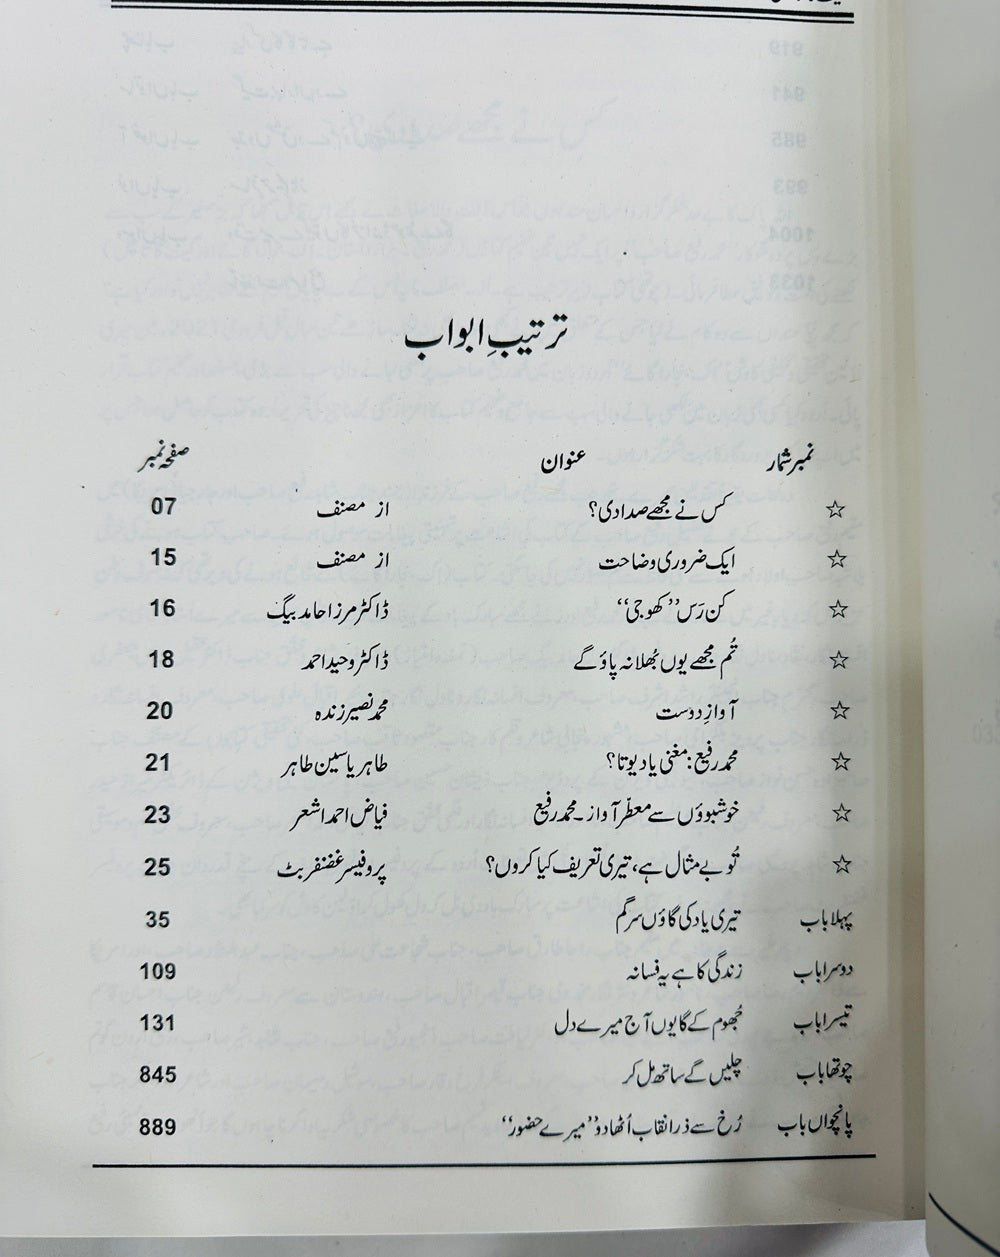 ترتیبِ ابواب
نمبر شمار عنوان صفحہ نمبر
☆ کس نے مجھے صدا دی؟ از مصنف 07
☆ ایک ضروری وضاحت از مصنف 15
☆ کن رَس ”کھوجی“ ڈاکٹر مرزا حامد بیگ 16
☆ تُم مجھے یوں بُھلا نہ پاؤ گے ڈاکٹر وحید احمد 18
☆ آوازِ دوست محمد نصیر زندہ 20
☆ محمد رفیع: مغنی یا دیوتا؟ طاہر یاسین طاہر 21
☆ خوشبوؤں سے معطّر آواز۔ محمد رفیع فیاض احمد اشعر 23
☆ تُو بے مثال ہے، تیری تعریف کیا کروں؟ پروفیسر غضنفر بٹ 25
پہلا باب تیری یاد کی گاؤں سرگم 35
دوسرا باب زندگی کا ہے یہ فسانہ 109
تیسرا باب جُھوم کے گا یوں آج میرے دل 131
چوتھا باب چلیں گے ساتھ مل کر 845
پانچواں باب رُخ سے ذرا نقاب اُٹھا دو ”میرے حضور“ 889